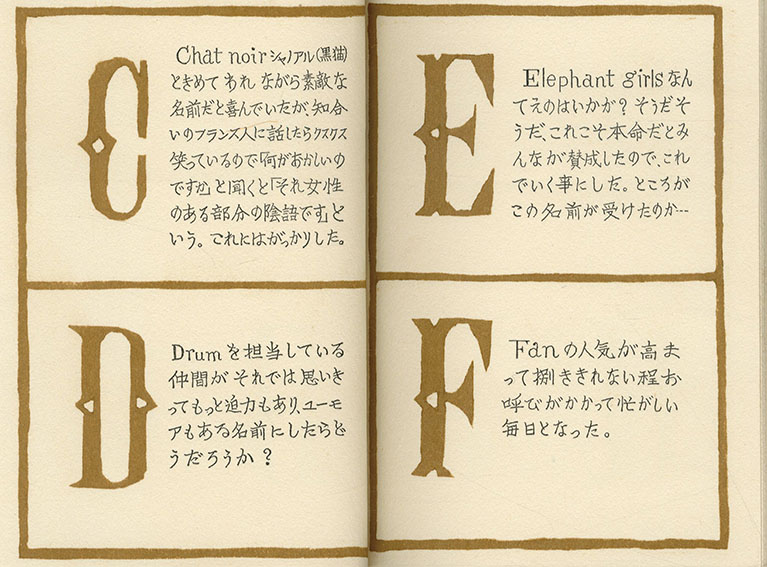 C
Chat noir シャノアル(黒猫)
ときめて われ ながら素敵な
名前だと喜んでいたが、知合
いのフランス人に話したらクスクス
笑っているので「何がおかしいの
ですか」と聞くと「それ女性
のある部分の陰語です」と
いう。これにはがっかりした。
D
Drum を担当している
仲間が それでは思いき
ってもっと迫力もあり、ユーモ
アもある名前にしたらど
うだろうか?
E
Elephant girls なん
てえのはいかが?そうだそ
うだ、これこそ本命だとみ
んなが賛成したので、これ
でいく事にした。ところが
この名前が受けたのか…
F
Fan の人気が高ま
って捌ききれない程お
呼びがかかって忙がしい
毎日となった。